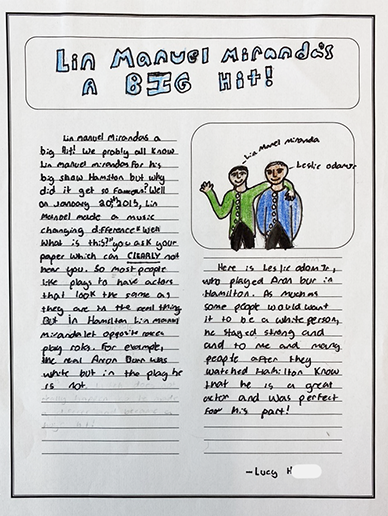 Lin Manuel Miranda's
A BIG Hit!
Lin manuel Mirandas a
big Hit! We probly all know
Lin manuel mirandas for his
big show Hamilton but why
did it get so Famous? Well
on January 20th 2015, Lin
Manuel made a music
changing difference "Well
What is this?" you ask your
paper which can CLEARLY not
hear you. So most people
like plays to have actors
that look the same as
they are in the real thing.
But in Hamilton Lin manuel
Miranda let opposite races
play roles. For example,
the real Arron Burr was
white but in the play he
is not
Lin Manuel Miranda
Leslie odom jr
Here is Leslie odom Jr,
who played Aron bur in
Hamilton. As much as
some people would want
it to be a white person,
he stayed strong and
and to me and many
people after they
watched Hamilton Know
that he is a great
actor and was perfect
for his part!
-Lucy H